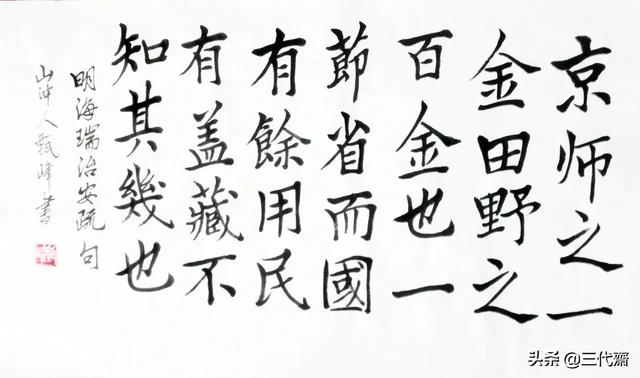 京师之一
金田野之
百金也一
節省而國
有餘用民
有盖藏不
知其幾也
明海瑞治安疏句
山沖人甄峰書
头条 @三代齋